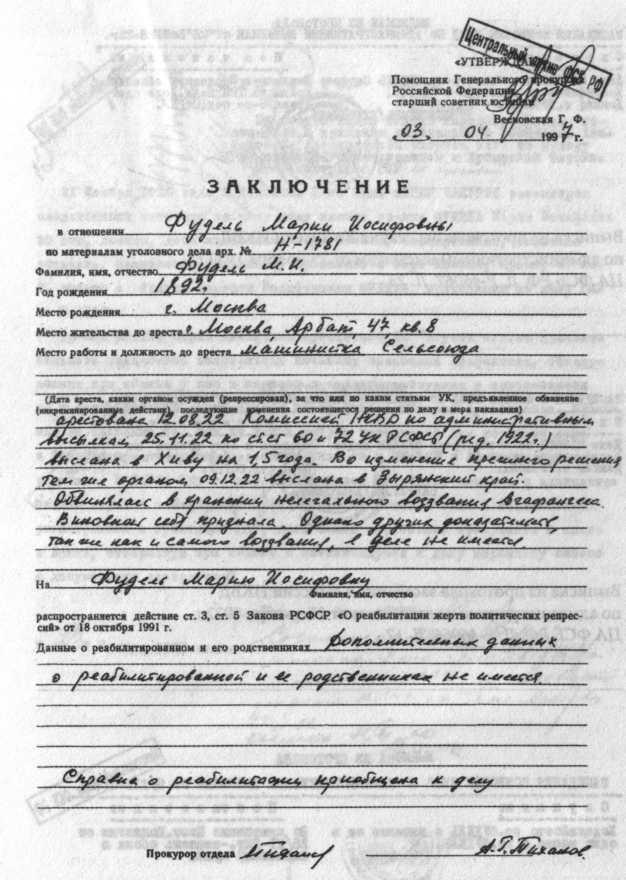 Центральный архив ФСБ РФ
«УТВЕРЖДАЮ»
Помощник Генерального прокурора
Российской Федерации
старший советник юстиции
Весновская Г. Ф.
«03» 04 1997 г.
ЗАКЛЮЧЕНИЕ
в отношении Фудель Марии Иосифовны
по материалам уголовного дела арх. № Н-1781
Фамилия, имя, отчество Фудель М.И.
Год рождения 1892г.
Место рождения г. Москва
Место жительства до ареста г. Москва Арбат 47 кв. 8
Место работы и должность до ареста машинистка Сельсоюза
(Дата ареста, каким органом осужден (репрессирован), за что или по каким статьям УК, предъявленное обвинение
(инкриминированные действия), последующие изменения состоявшегося решения по делу и мера наказания)
арестована 12.08.22 Комиссией НКВД по административным
высылкам 25.11.22 по ст.ст 60 и 72 УК РСФСР (ред. 1922г.)
выслана в Хиву на 1,5 года. Во изменение прежнего решения
тем же органом 09.12.22 выслана в Зырянский край.
Обвинялась в хранении нелегального воззвания Агафангела.
Виновной себя признала. Однако других доказательств,
так же как и самого воззвания, в деле не имеется.
На Фудель Марию Иосифовну
Фамилия, имя, отчество
распространяется действие ст. 3, ст. 5 Закона РСФСР «О реабилитации жертв политических репрес-
сий» от 18 октября 1991 г.
Данные о реабилитированном и его родственниках Дополнительных данных
о реабилитированной и ее родственниках не имеется
Справка о реабилитации приобщена к делу
Прокурор отдела А.Г. Тихонов